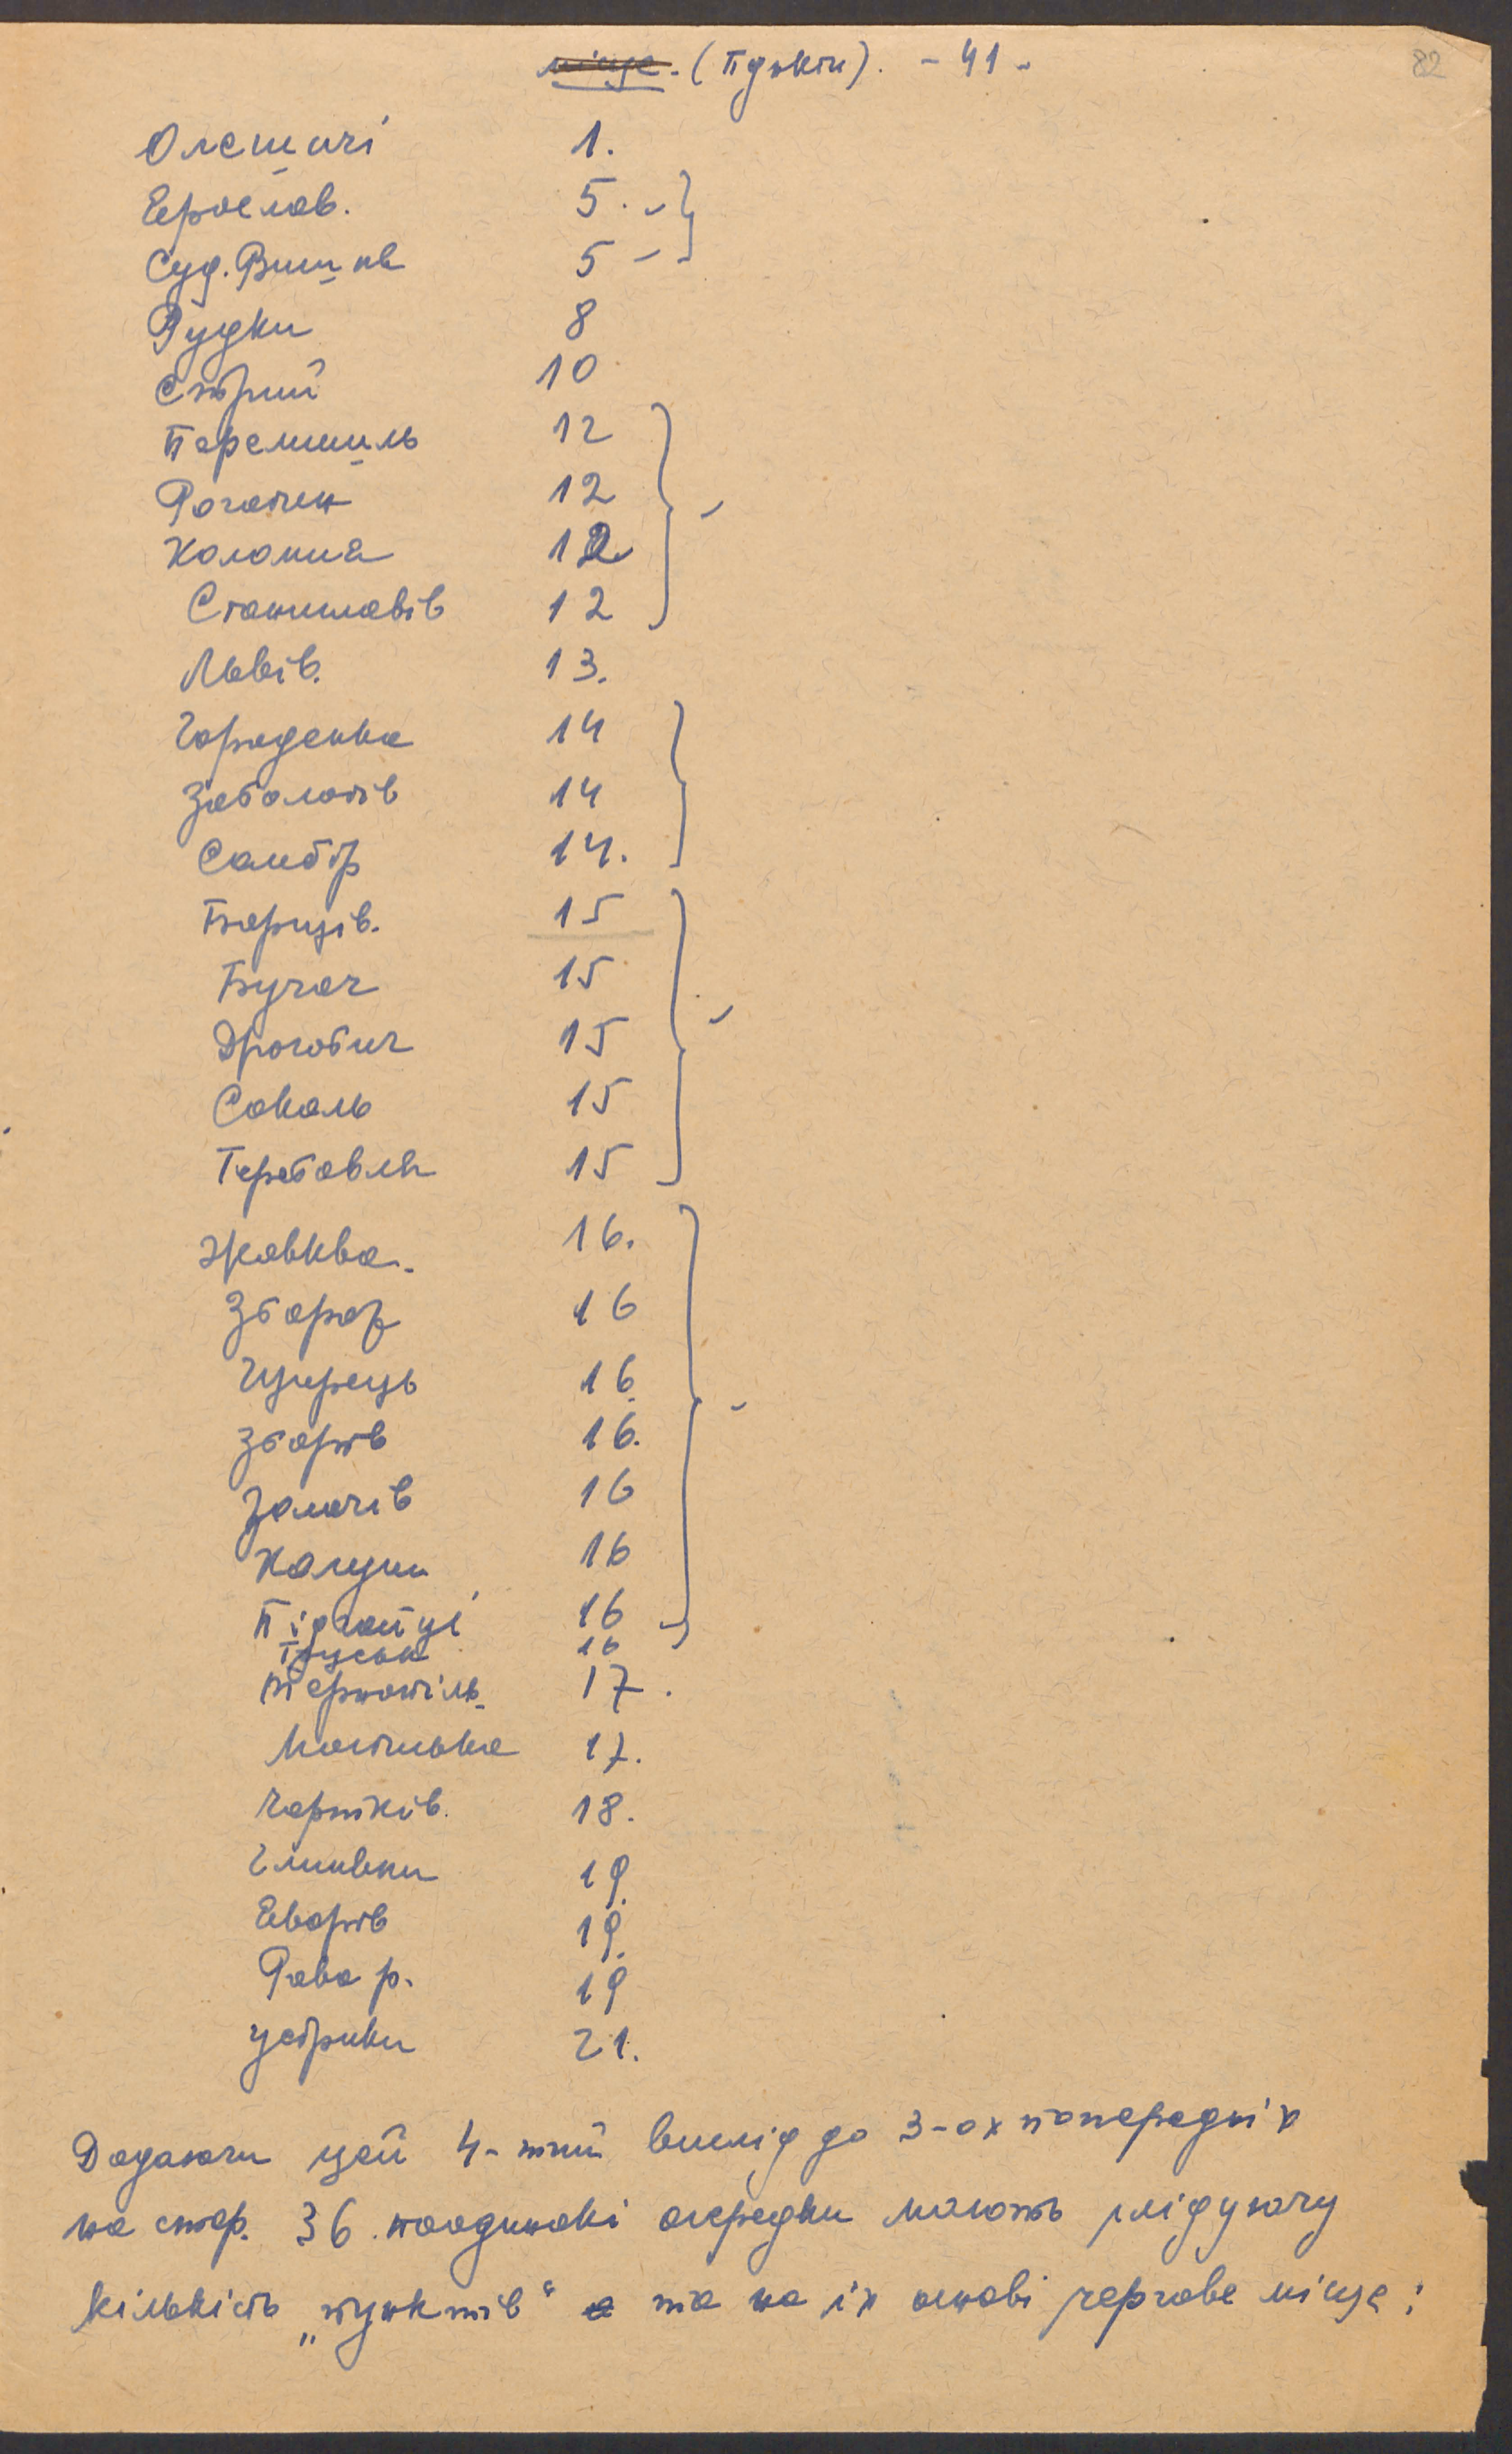 місце. (Пункти). - 41 -
82
Олешичі 1.
Ярослав. 5. -
Суд. Вишня 5 -
Рудки 8
Стрий 10
Перемишль 12
Рогатин 12
Коломия 12
Станиславів 12
Львів. 13.
Городенка 14
Заболотів 14
Самбір 14.
Борщів. 15
Бучач 15
Дрогобич 15
Сокаль 15
Теребовля 15
Жовква. 16.
Збараж 16
Щирець 16.
Зборів 16.
Золочів 16
Калуш 16
Підгайці 16
16
Тернопіль 17.
Мостиська 17.
Чортків. 18.
Глиняни 19.
Яворів 19.
Рава р. 19
Устрики 21.
Додаючи цей 4-тий вислід до 3-ох попередніх
на стор. 36. поодинокі осередки мають слідуючу
кількість „пунктів“ та на їх основі чергове місце: